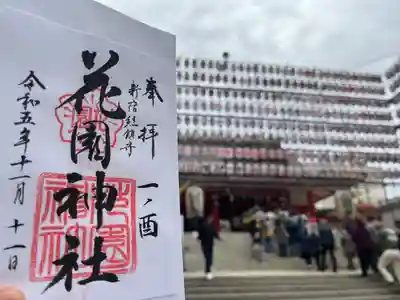 奉拝
一ノ酉
新宿総鎮守
花園神社
令和五年十一月十一日